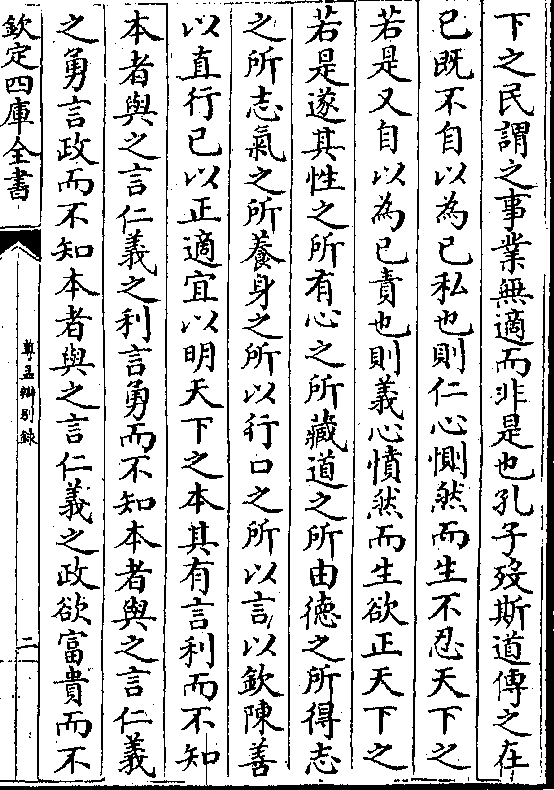 下之民謂之事業無適而非是也孔子歿斯道傳之在
已既不自以為已私也則仁心惻然而生不忍天下之
若是又自以為已責也則義心憤然而生欲正天下之
若是遂其性之所有心之所藏道之所由徳之所得志
之所志氣之所養身之所以行口之所以言以欽陳善
以直行已以正適宜以明天下之本其有言利而不知
本者與之言仁義之利言勇而不知本者與之言仁義
之勇言政而不知本者與之言仁義之政欲富貴而不
欽定四庫全書
尊孟辨别録
二